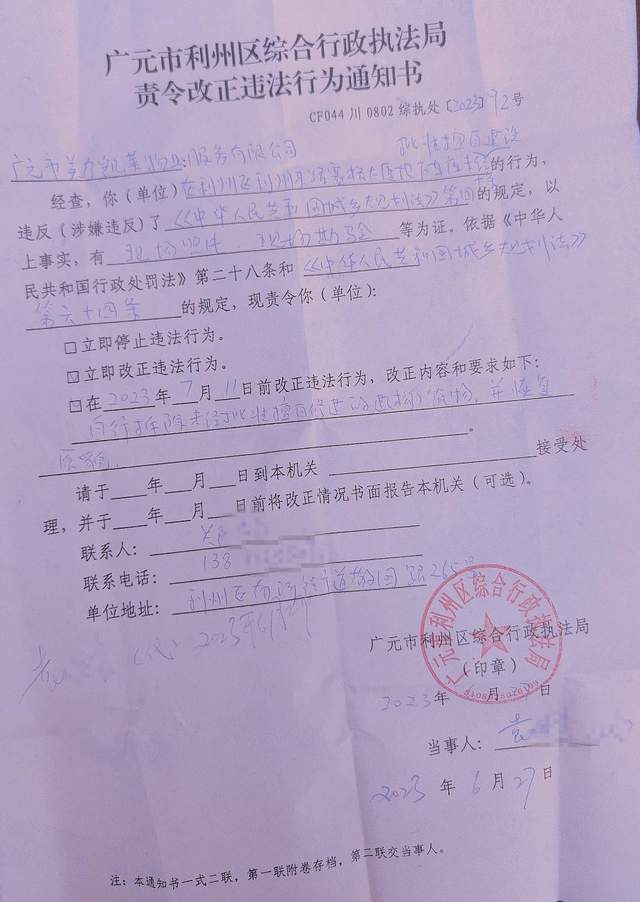 广元市利州区综合行政执法局
责令改正违法行为通知书
CF044 川 0802 综执处〔2023〕92号
广元市 物业服务有限公司 批准擅自建设
经查，你（单位）在利州区利州 大厦地下车库 的行为，
违反（涉嫌违反）了《中华人民共和国城乡规划法》第四 的规定，以
上事实，有 现场照片、现场勘验 等为证。依据《中华人
民共和国行政处罚法》第二十八条和《中华人民共和国城乡规划法》
第六十四条 的规定，现责令你（单位）：
□立即停止违法行为。
☑立即改正违法行为。
☑在2023年7月11日前改正违法行为，改正内容和要求如下：
自行拆除未经批准擅自修建的 筑物，并恢复
原貌。
请于___年___月___日到本机关 接受处
理，并于___年___月___日前将改正情况书面报告本机关（可选）。
联系人：
联系电话：138
单位地址：利州区 街道 路26
(代) 2023年6月27
广元市利州区综合行政执法局
广元市利州区综合行政执法局
（印章）
2023年 月27日
当事人：袁
2023年6月27日
注：本通知书一式二联，第一联附卷存档，第二联交当事人。